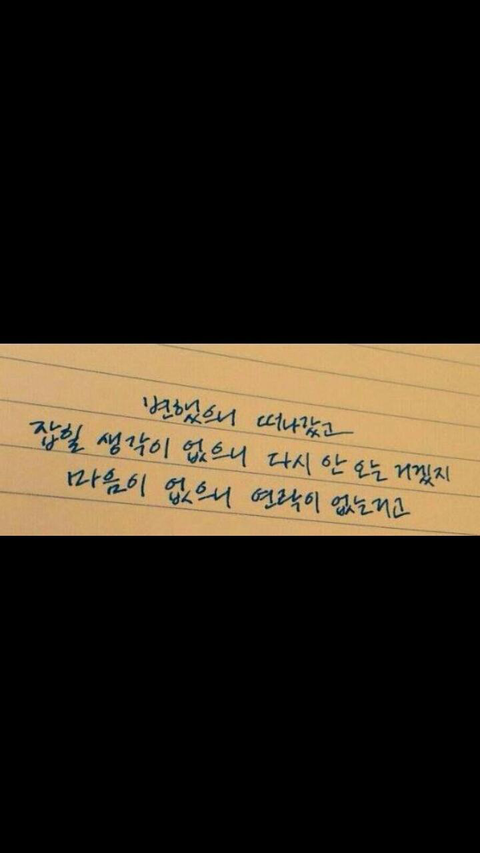 변했으니 떠나갔고
잡힐 생각이 없으니 다시 안 오는 거겠지
마음이 없으니 연락이 없는거고